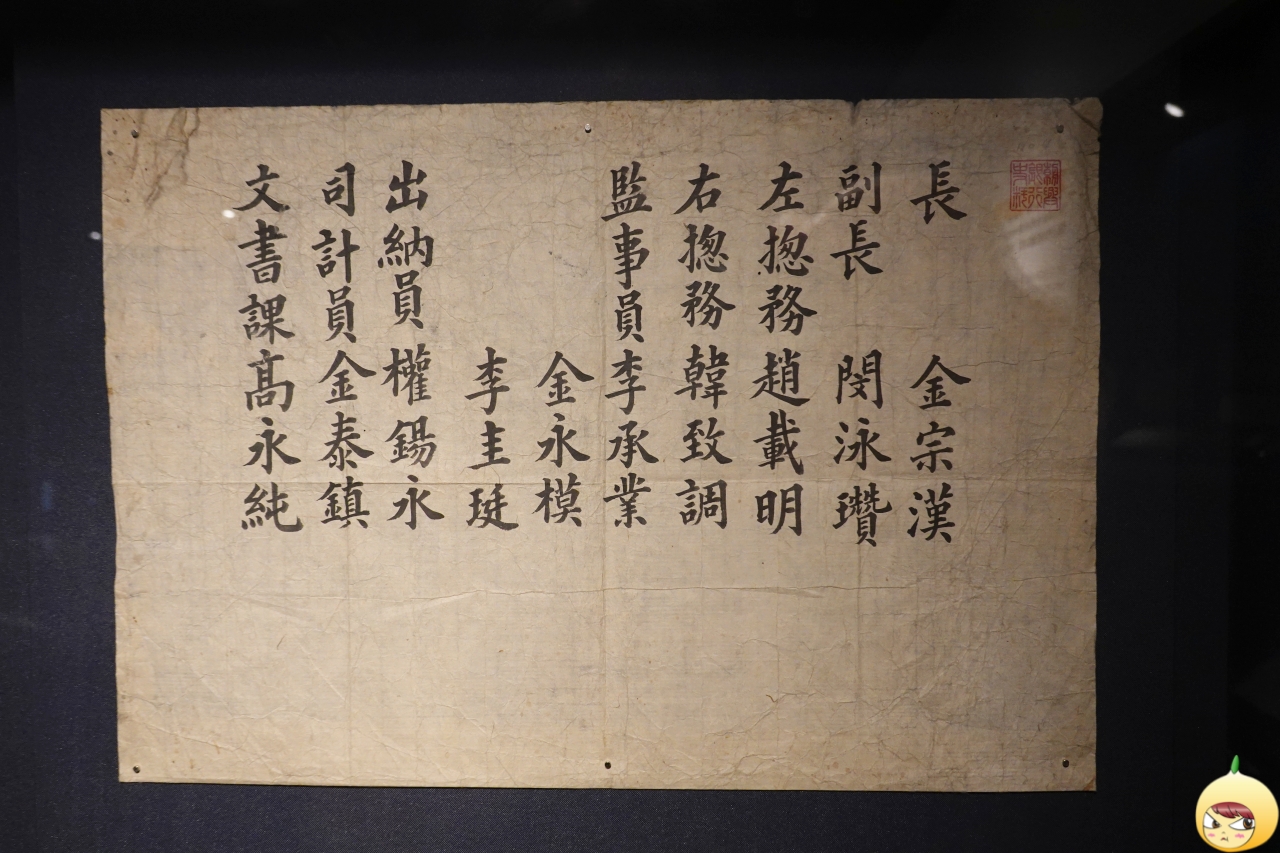 長 金宗漢
副長 閔泳瓚
左揔務 趙載明
右揔務 韓致調
監事員 李承業
金永模
李圭珽
出納員 權錫永
司計員 金泰鎮
文書課 髙永純